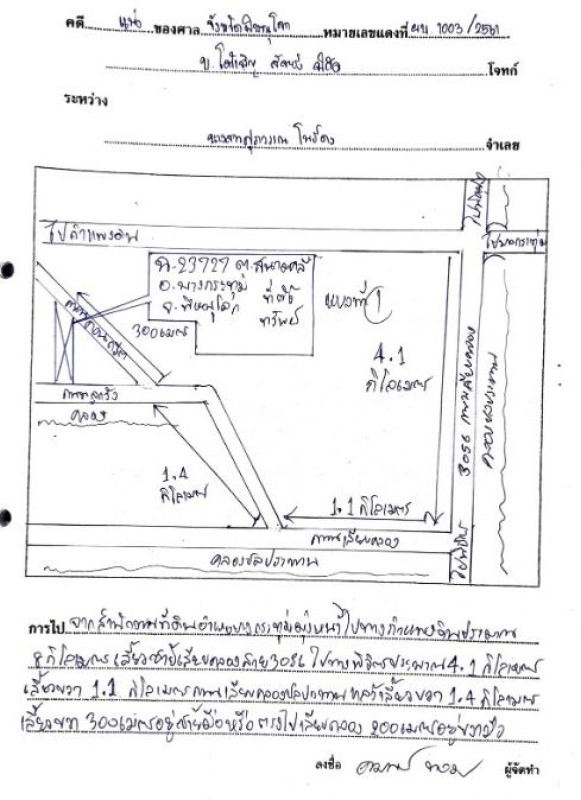 คดี แพ่ง ของศาล จังหวัดพิษณุโลก หมายเลขแดงที่ ผบ. 1003/2561
โจทก์
ระหว่าง
จำเลย
ไปกำแพงดิน
ไปบางกระทุ่ม
ฉ.23727 ต.สนามคลี
อ.บางกระทุ่ม ที่ตั้ง
จ.พิษณุโลก ทรัพย์
แปลงที่ 1
300 เมตร
4.1
กิโลเมตร
3056 ถนนเลียบคลอง
คลองชลประทาน
ถนนลูกรัง
คลอง
1.4
กิโลเมตร
1.1 กิโลเมตร
ถนนเลียบคลอง
คลองชลประทาน
ไปพิจิตร
การไป จากสำนักงานที่ดินอำเภอบางกระทุ่มมุ่งหน้าไปทางกำแพงดินประมาณ
8 กิโลเมตร เลี้ยวซ้ายเลียบคลองสาย 3056 ไปทางพิจิตรประมาณ 4.1 กิโลเมตร
เลี้ยวขวา 1.1 กิโลเมตร ถนนเลียบคลองชลประทาน แล้วเลี้ยวขวา 1.4 กิโลเมตร
เลี้ยวขวา 300 เมตรอยู่ซ้ายมือหรือตรงไปเลียบคลอง 200 เมตรอยู่ขวามือ
ลงชื่อ ผู้จัดทำ